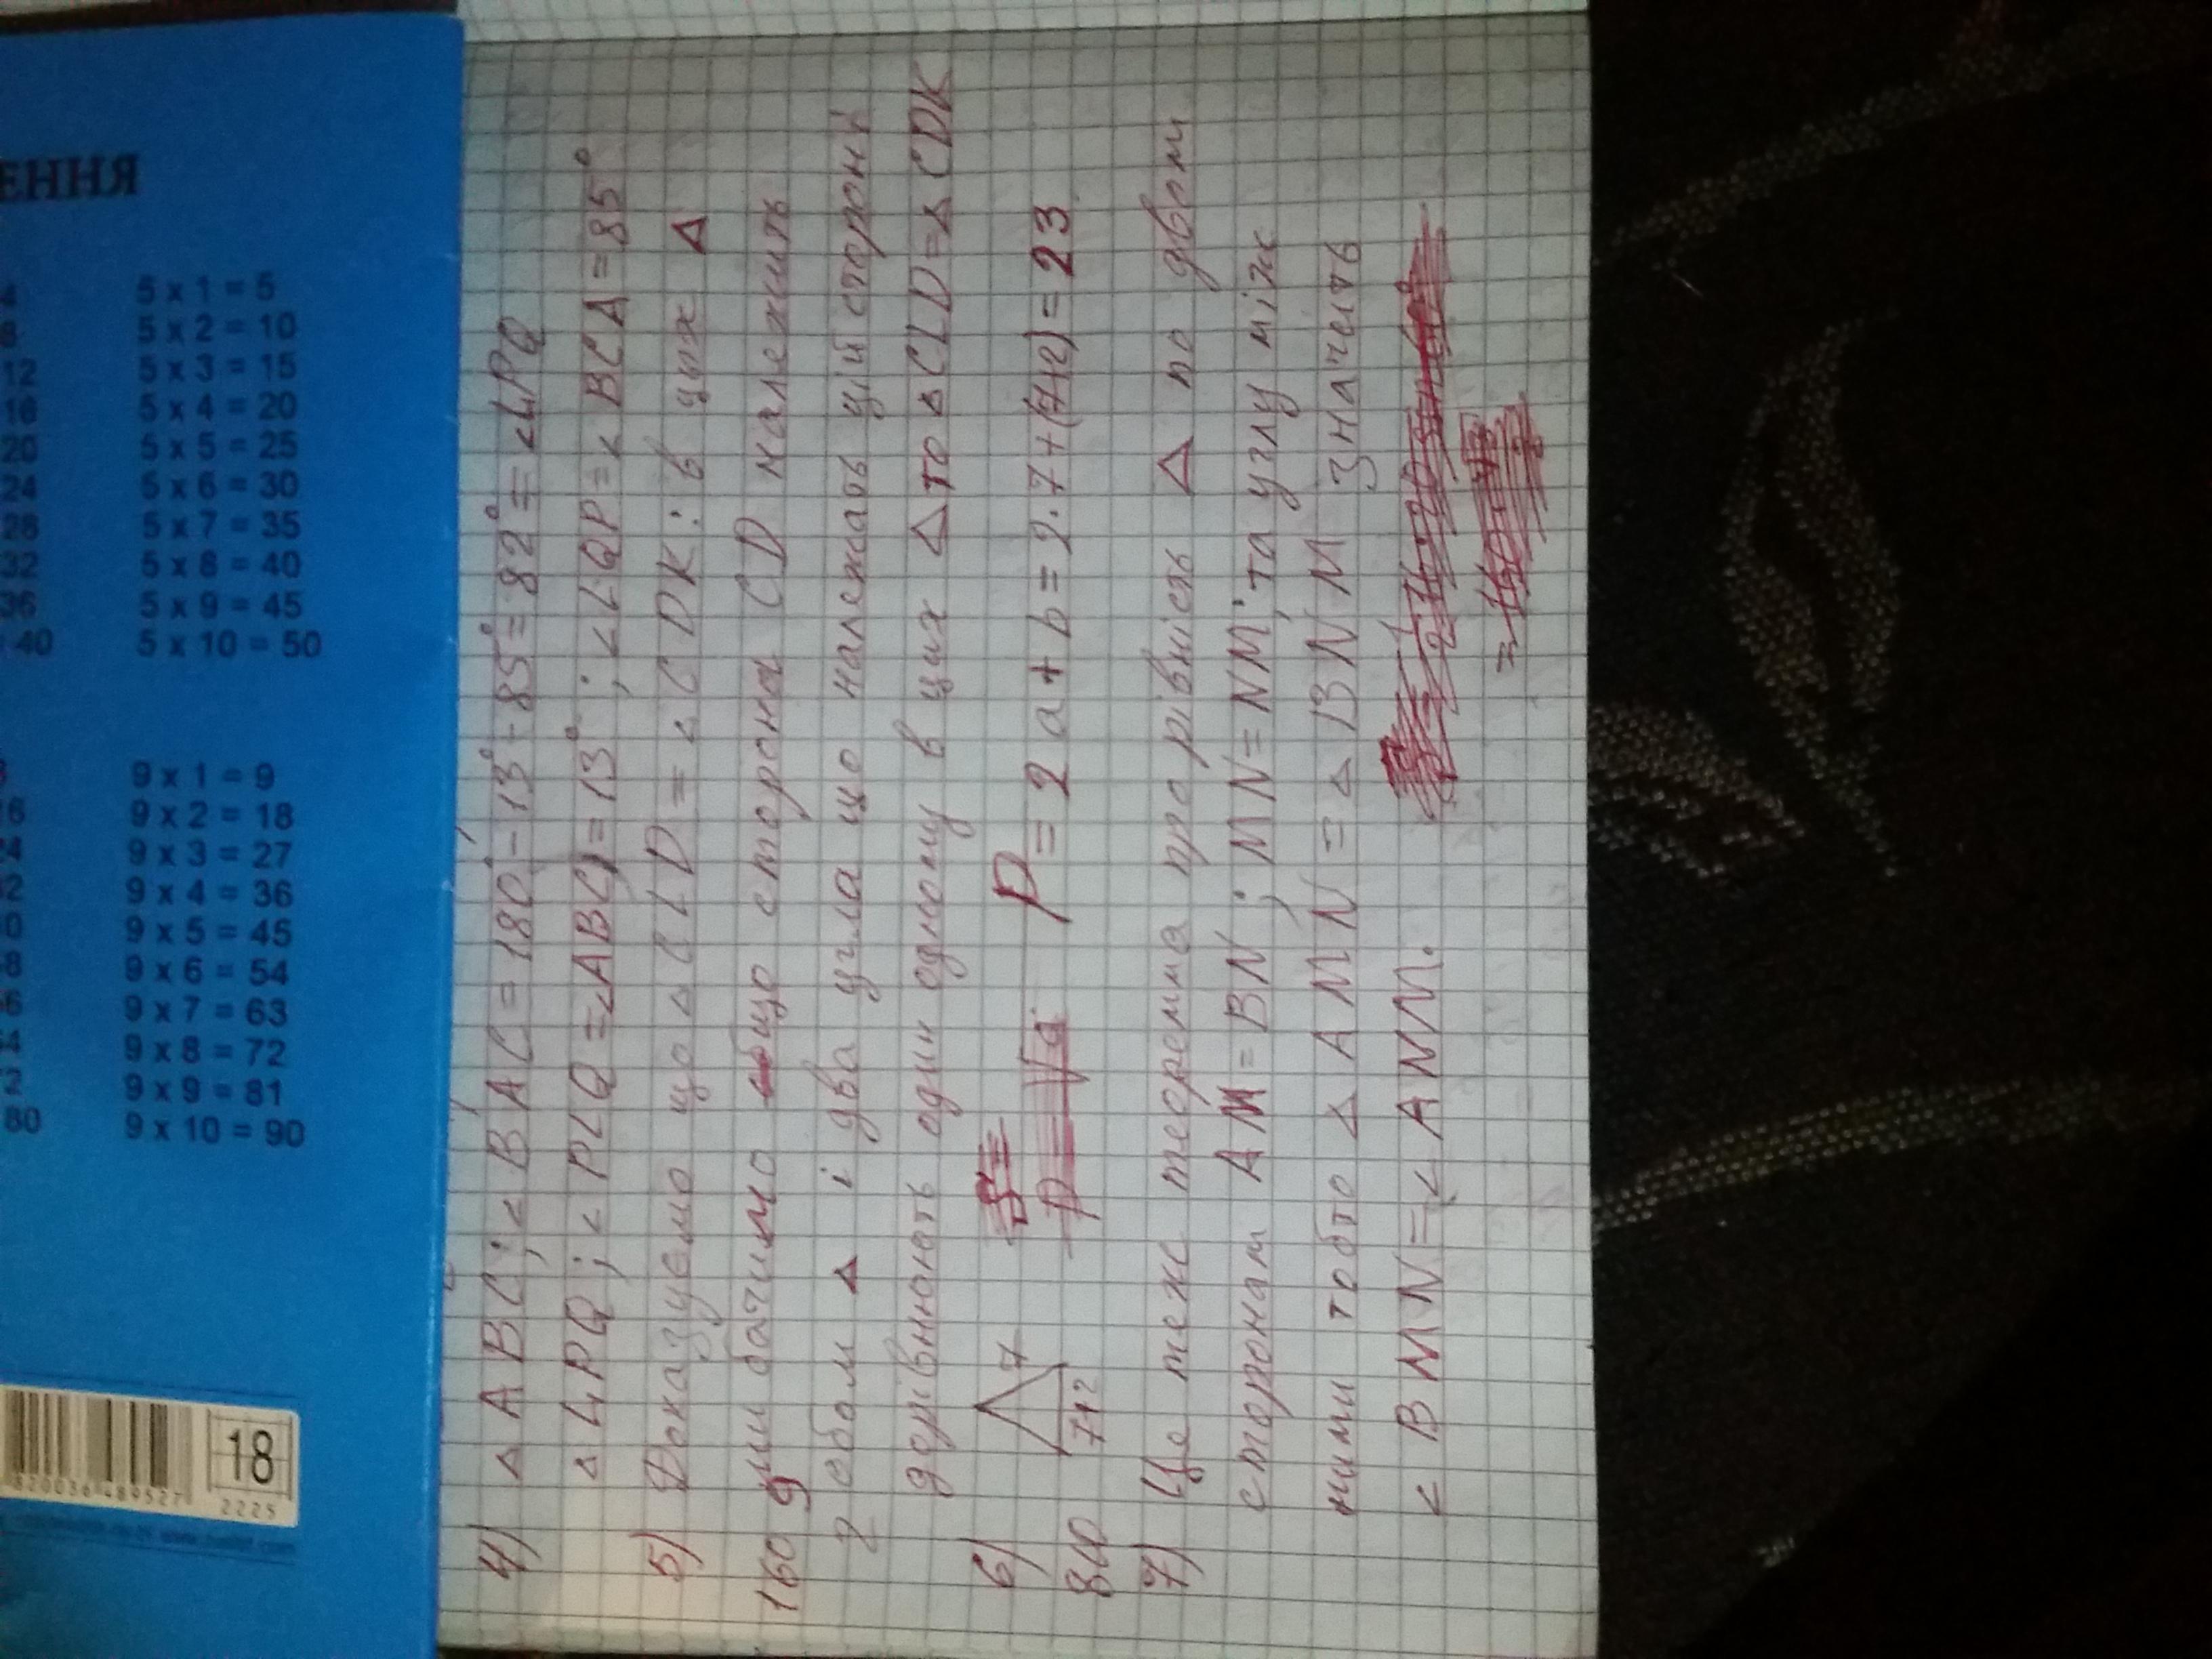 ЕННЯ
4
8
12
16
20
24
28
32
36
40
5 x 1 = 5
5 x 2 = 10
5 x 3 = 15
5 x 4 = 20
5 x 5 = 25
5 x 6 = 30
5 x 7 = 35
5 x 8 = 40
5 x 9 = 45
5 x 10 = 50
80
9 x 1 = 9
9 x 2 = 18
9 x 3 = 27
9 x 4 = 36
9 x 5 = 45
9 x 6 = 54
9 x 7 = 63
9 x 8 = 72
9 x 9 = 81
9 x 10 = 90
820036 489527
18
2225
4) △ ABC; < BAC = 180° - 13° - 85° = 82° = < LPQ
△ LPQ; < PLQ = <ABC = 13°; < LQP = < BCA = 85°
5) Доказуемо що △ CLD = △ CDK: в цих △
ми бачимо общю сторона CD належить
2 обом △ і два угла що належать цій стороні
дорівнюють один одному в цих △ то △ CLD = △ CDK
6) 7 P = 2a + b = 2·7+(7+2) = 23
7+2
7) Це теж теоремма про рівність △ по двом
сторонам AM = BN; MN = NM; та углу між
ними тобто △ AMN = △ BNM значить
< BMN = < ANM.